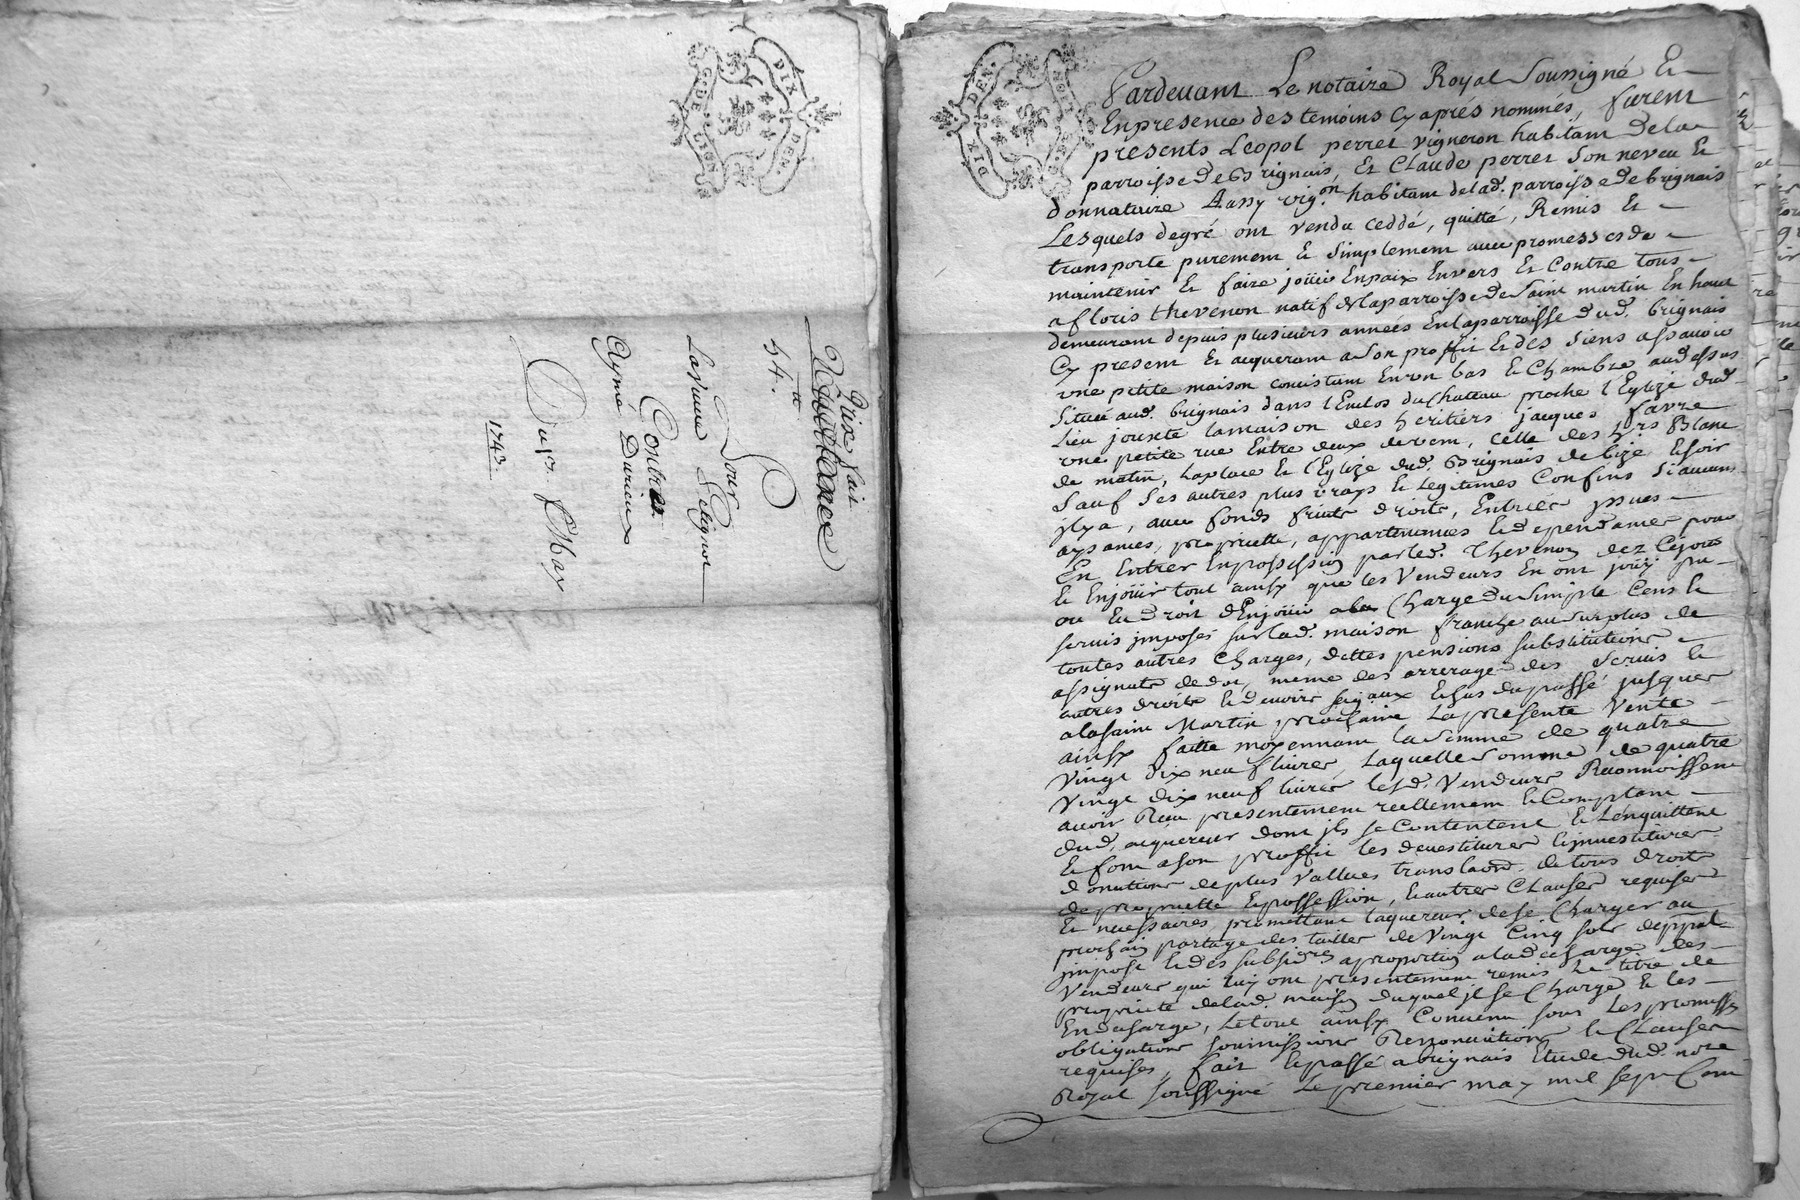 GDE. LION
DIX DEN.
quix fait
Quittance
54.
Pour
La veuve Peleignon
Contre
Aymé Durieux
Du 13. May
1743
DIX DEN.
Pardevant Le notaire Royal Soussigné Et
En presence des temoins Cy apres nommés, furent
présents Leopol perret vigneron habitant de la
parroisse de Brignais, Et Claude perret son neveu Et
donnataire Aassy vig.on habitant de lad. parroisse de brignais
Lesquels de gré ont vendu ceddé, quitté, Remis Et
transporte purement Et Simplement avec promesses de
maintenir Et faire joüir En paix Envers Et Contre tous
a floris thevenon natif de la parroisse de saint martin En haut
demeurant depuis plusieurs années En la parroisse dud. brignais
Cy present Et acquerant a son proffit Et des siens assavoir
une petite maison consistant En un bas Et Chambre audessus
Située aud. brignais dans l'Enclos du chateau proche l'Eglize dud.
Lieu jouxte la maison des heritiers jacques favre
une petite rue Entre deux de vent, celle des h.rs Blanc
de matin, La place Et l'Eglize dud. Brignais de bize Et soir
Sauf ses autres plus vrays Et Legitimes Confins si aucuns
jl y a, avec fonds fruits droits, Entrées yssues
aysances, propriette, appartenances Et dependances pour
En Entrer En possession par led. Thevenon dez Cejourd
Et En joüir tout ainsy que les Vendeurs En ont joüy pu
ou Eu droit d'En joüir a la Charge du simple Cens Et
servis jmposés sur lad. maison franche au surplus de
toutes autres Charges, dettes pensions substitutions
assignats de dot, meme des arrerages des servis Et
autres droits Et devoirs seig.aux Echus du passé jusques
a la saint Martin prochaine La presente Vente
ainsy faitte moyennant la Somme de quatre
Vingt dix neuf livres, Laquelle Somme de quatre
Vingt dix neuf livres lesd. Vendeurs Reconnoissent
avoir Receu presentement reellement Et Comptant
dud. acquereur dont jls se Contentent Et L'enquittent
Et font a son proffit les devestitures Et jnvestitures
donations de plus vallues translaon. de tous droits
de propriette Et possession, Et autres Clauses requises
Et necessaires, promettant l'aquereur de se Charger au
prochain partage des tailles de Vingt Cinq sols de ppal
jmpose Et des subsides a proportion a la decharge des
Vendeurs qui luy ont presentement remis Le titre de
propriete de lad. maison duquel jl se Charge Et les
En decharge, Le tout ainsy Convenu sous Les promesses
obligations soumissions Renonciations Et Clauses
requises, fait Et passé a brignais Etude dud. no.re
Royal soussigné Le premier may mil sept Cent